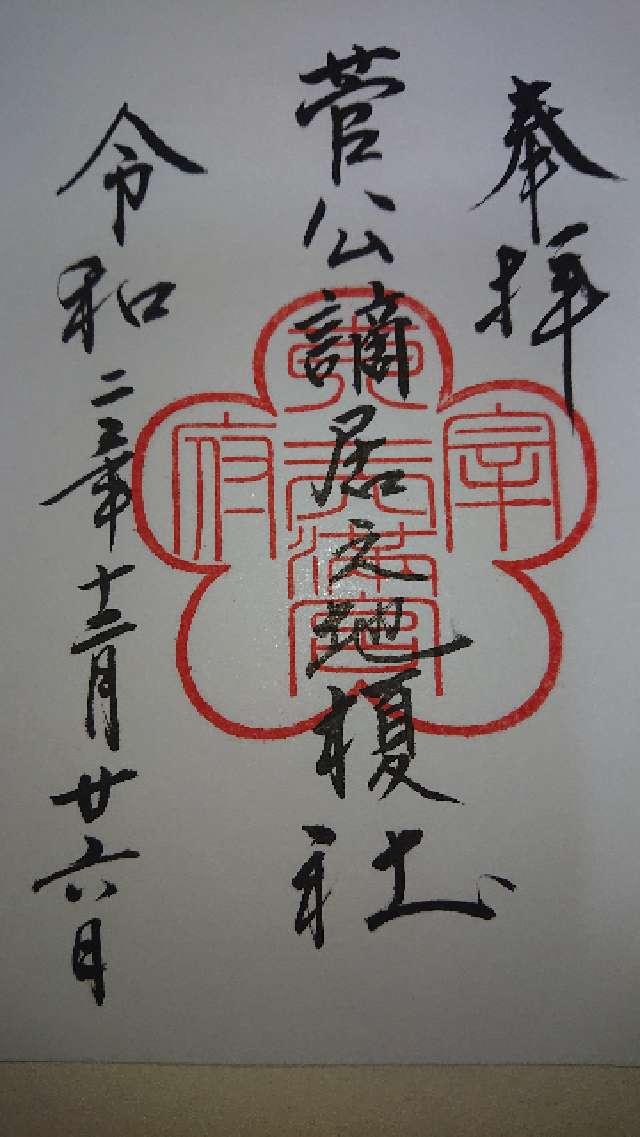 奉拝
菅公謫居之地榎社
令和二年十二月廿六日
宰
天満宮
府